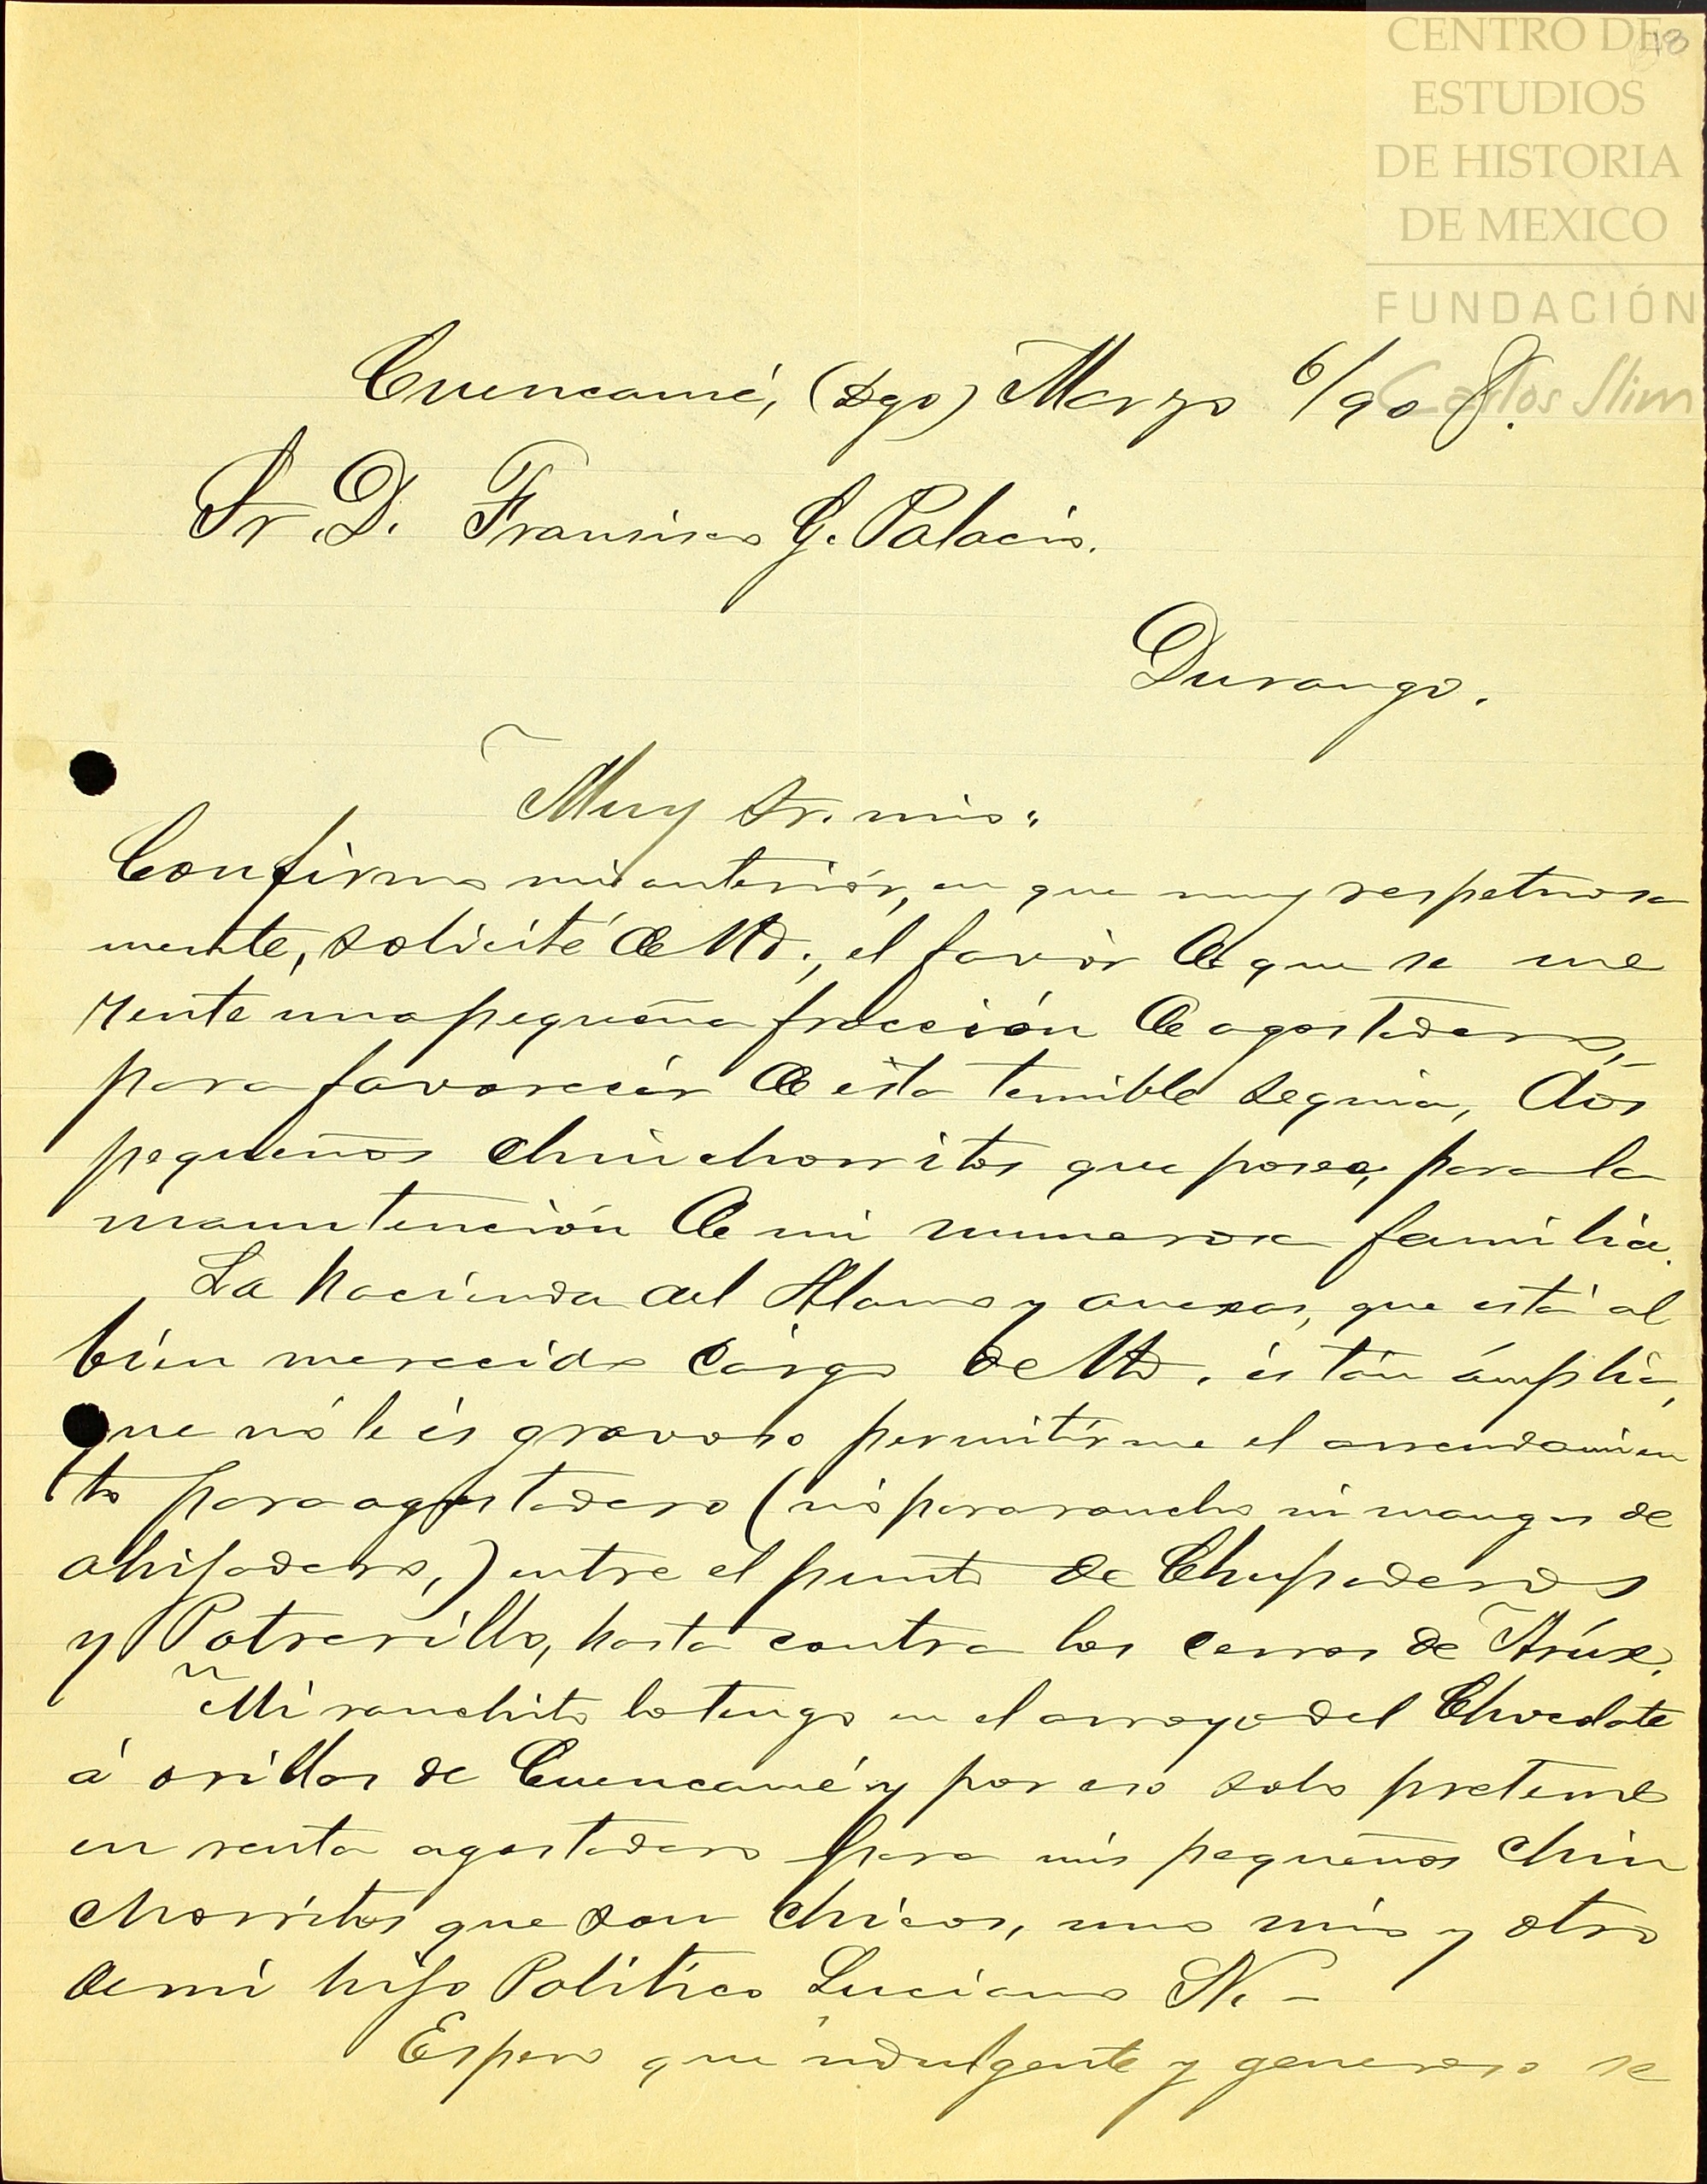 CENTRO DE
ESTUDIOS
DE HISTORIA
DE MEXICO
FUNDACIÓN
Carlos Slim
Cuencamé, (Dgo) Marzo 6/908.
Sr. D. Francisco G. Palacio.
Durango.
Muy Sr. mio:
Confirmo mi anteriór, en que muy respetuosa
mente, solicité de Ud., el favór de que se me
rente una pequeña fracción de agostadero,
para favorecér de esta temible sequia, dos
pequeños chinchorritos que poseo, para la
manutención de mi numerosa familia.
La hacienda del Alamo y anexas, que está al
bien merecido cárgo de Ud. és tán ámplia,
que nó le és gravoso permitírme el arrendamien
to para agostadero (nó para rancho ni mangas de
ahijadero,) entre el punto de Chupaderos
y Potrerillo, hasta contra los cerros de
Mi ranchito lo tengo en el arroyo del Chocolate
á orillas de Cuencamé y por eso solo pretendo
en renta agostadero para mis pequeños chin
chorritos que son chicos, uno mio y otro
de mi hijo Politico Luciano N. -
Espero que indulgente y generoso se